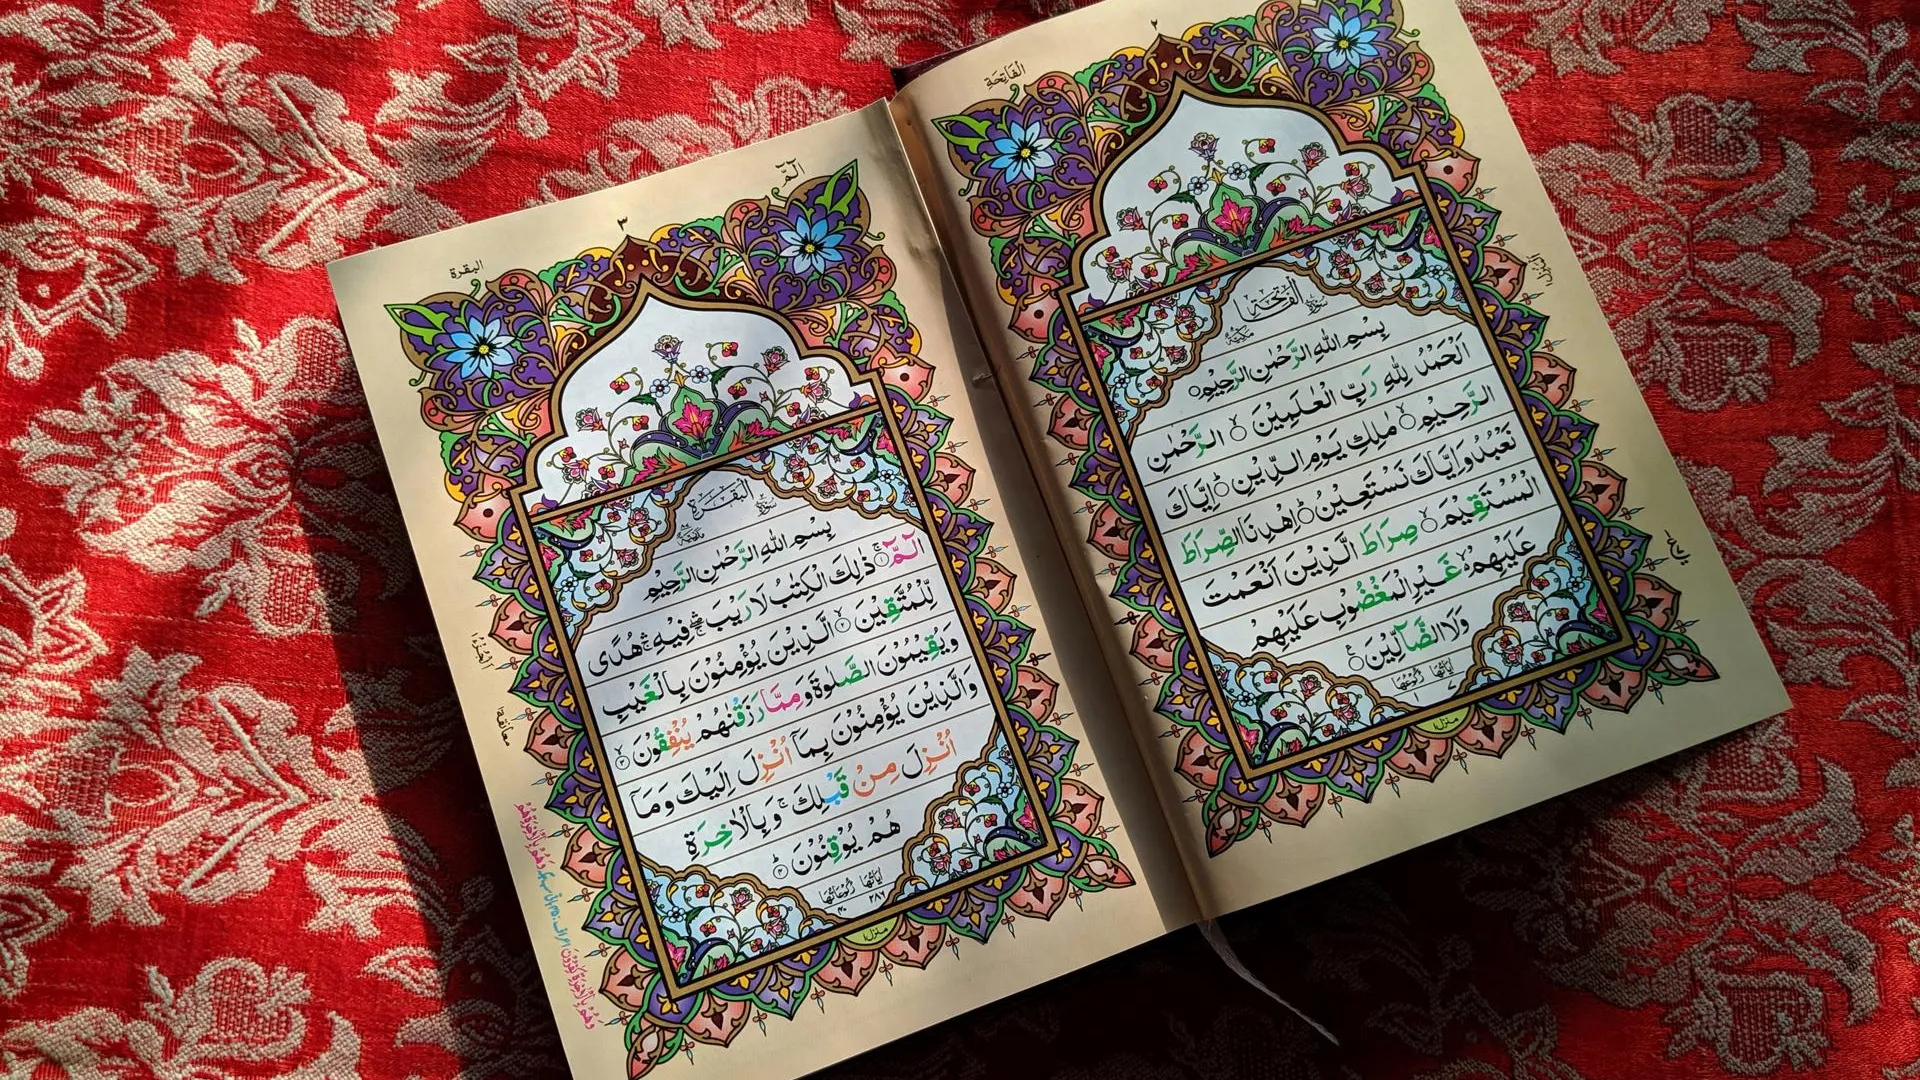 ٢
الفَاتِحَة
سورة الفَاتِحَة
مَكِّيَّة
بِسْمِ اللهِ الرَّحْمٰنِ الرَّحِيْمِ ۝
اَلْحَمْدُ لِلّٰهِ رَبِّ الْعٰلَمِيْنَ ۙ۝ الرَّحْمٰنِ
الرَّحِيْمِ ۙ۝ مٰلِكِ يَوْمِ الدِّيْنِ ؕ۝ اِيَّاكَ
نَعْبُدُ وَاِيَّاكَ نَسْتَعِيْنُ ؕ۝ اِهْدِنَا الصِّرَاطَ
الْمُسْتَقِيْمَ ۙ۝ صِرَاطَ الَّذِيْنَ اَنْعَمْتَ
عَلَيْهِمْ ۙ۬ غَيْرِ الْمَغْضُوْبِ عَلَيْهِمْ
وَلَا الضَّآلِّيْنَ ۝
اٰيَاتُهَا ٧ رُكُوْعُهَا ١
منزل ١
٣
الٓمّٓ
البقرة
سورة البَقَرَة
مَدَنِيَّة
بِسْمِ اللهِ الرَّحْمٰنِ الرَّحِيْمِ
الٓمّٓ ۚ۝ ذٰلِكَ الْكِتٰبُ لَا رَيْبَ ۛۖ فِيْهِ ۛۚ هُدًى
لِّلْمُتَّقِيْنَ ۙ۝ الَّذِيْنَ يُؤْمِنُوْنَ بِالْغَيْبِ
وَيُقِيْمُوْنَ الصَّلٰوةَ وَمِمَّا رَزَقْنٰهُمْ يُنْفِقُوْنَ ۙ۝
وَالَّذِيْنَ يُؤْمِنُوْنَ بِمَاۤ اُنْزِلَ اِلَيْكَ وَمَاۤ
اُنْزِلَ مِنْ قَبْلِكَ ۚ وَبِالْاٰخِرَةِ
هُمْ يُوْقِنُوْنَ ؕ۝
اٰيَاتُهَا ٢٨٦ رُكُوْعَاتُهَا ٤٠
منزل ١
معانقة ١